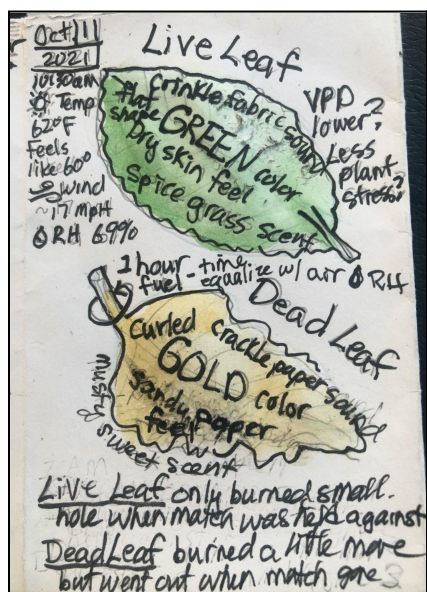 Oct 11
2021
10:30am
Temp
62°F
Feels
like 60°
Wind
~17 mpH
RH 69%
Live Leaf
crinkle fabric sound
flat
shape
GREEN color
Dry skin feel
Spice grass scent
VPD
lower?
Less
plant
stress?
1 hour - time
fuel equalize w/ air RH
Dead Leaf
Curled crackle paper sound
GOLD color
sandy paper
feel
musty sweet scent
Live Leaf only burned small
hole when match was held against
Dead Leaf burned a little more
but went out when match gone